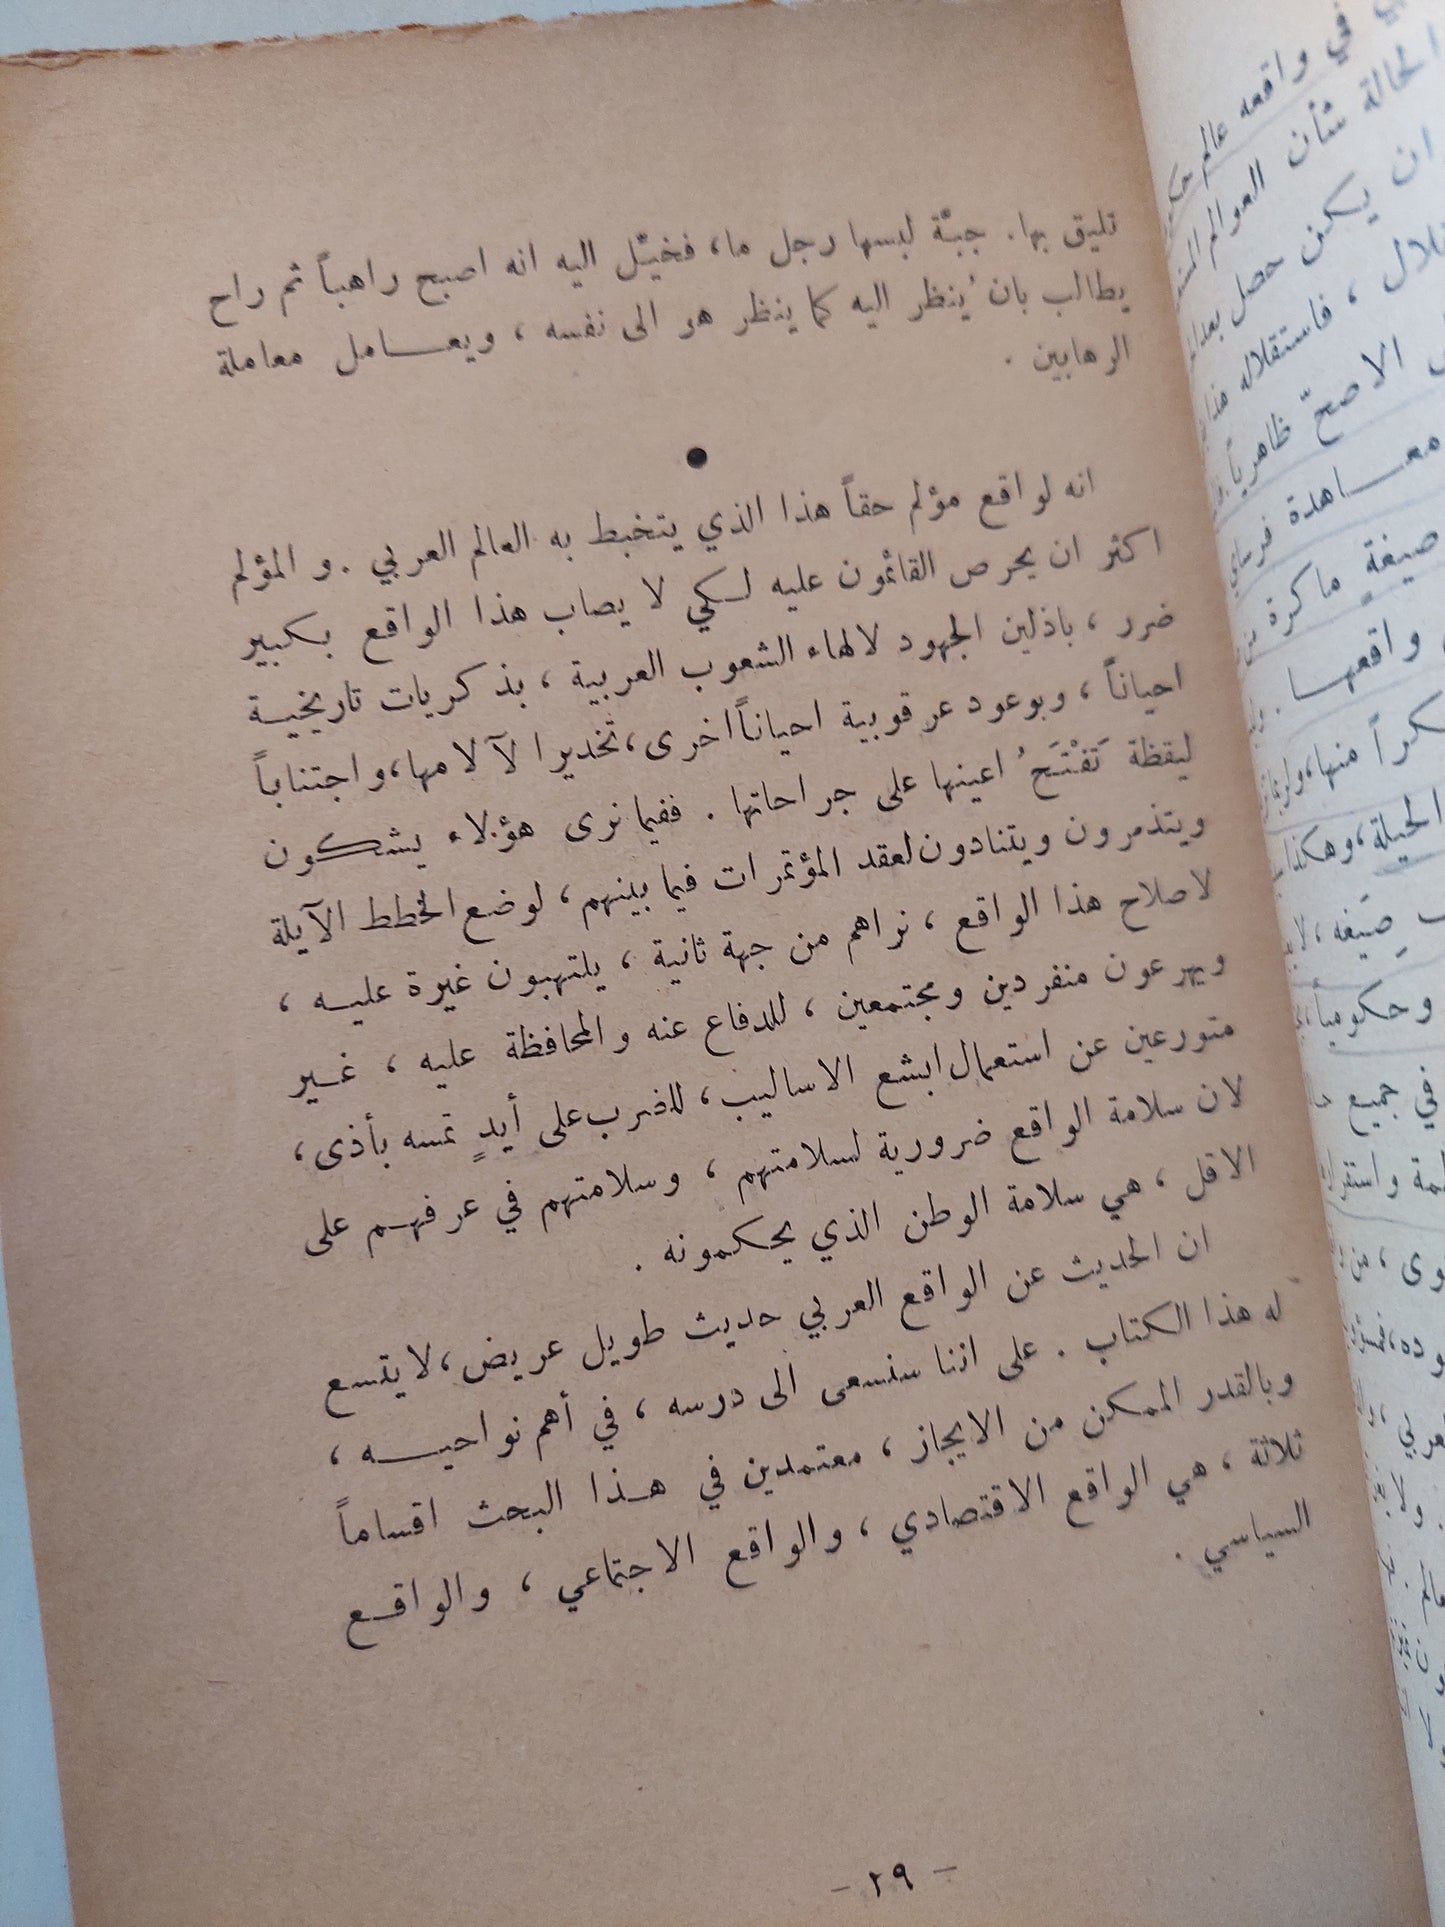 تليق بها. جبّة لبسها رجل ما، فخيّل اليه انه اصبح راهباً ثم راح
يطالب بان يُنظر اليه كما ينظر هو الى نفسه ، ويعـــامل معاملة
الرهابين .
●
انه لواقع مؤلم حقاً هذا الذي يتخبط به العالم العربي . والمؤلم
اكثر ان يحرص القائمون عليه لـكي لا يصاب هذا الواقع بـكبير
ضرر ، باذلين الجهود لالهاء الشعوب العربية ، بذكريات تاريخيـة
احياناً ، وبوعود عرقوبية احياناً اخرى، تخديرا لآلامها، واجتناباً
ليقظة تَفْتَحُ اعينها على جراحاتها . ففيما نرى هؤلاء يشكون
ويتذمرون ويتنادون لعقد المؤتمرات فيما بينهم ، لوضع الخطط الآيلة
لاصلاح هذا الواقع ، نراهم من جهة ثانية ، يلتهبون غيرة عليـه ،
ويهرعون منفردين ومجتمعين ، للدفاع عنه والمحافظة عليه ، غـير
متورعين عن استعمال ابشع الاساليب ، للضرب على أيدٍ تمسه بأذى ،
لان سلامة الواقع ضرورية لسلامتهم ، وسلامتهم في عرفهـم على
الاقل ، هي سلامة الوطن الذي يحكمونه .
ان الحديث عن الواقع العربي حديث طويل عريض، لا يتسع
له هذا الكتاب . على اننا سنسعى الى درسه ، في أهم نواحيـــه ،
وبالقدر الممكن من الايجاز ، معتمدين في هــذا البحث اقساماً
ثلاثة ، هي الواقع الاقتصادي ، والواقع الاجتماعي ، والواقــع
السياسي .
- ٢٩ -
في واقعه عالم
الحالة شأن العوالم
ان يكن حصل بعد
، فاستقلاله هذا
الاصحّ ظاهرياً
معـــاهدة فرساي
صيغةٍ ماكرة من
واقعهـا .
منها، ولربما
الحيلة، وهكذا
صِيَغه ، لا
وحكومياً
في جميع
واستقرار
، من